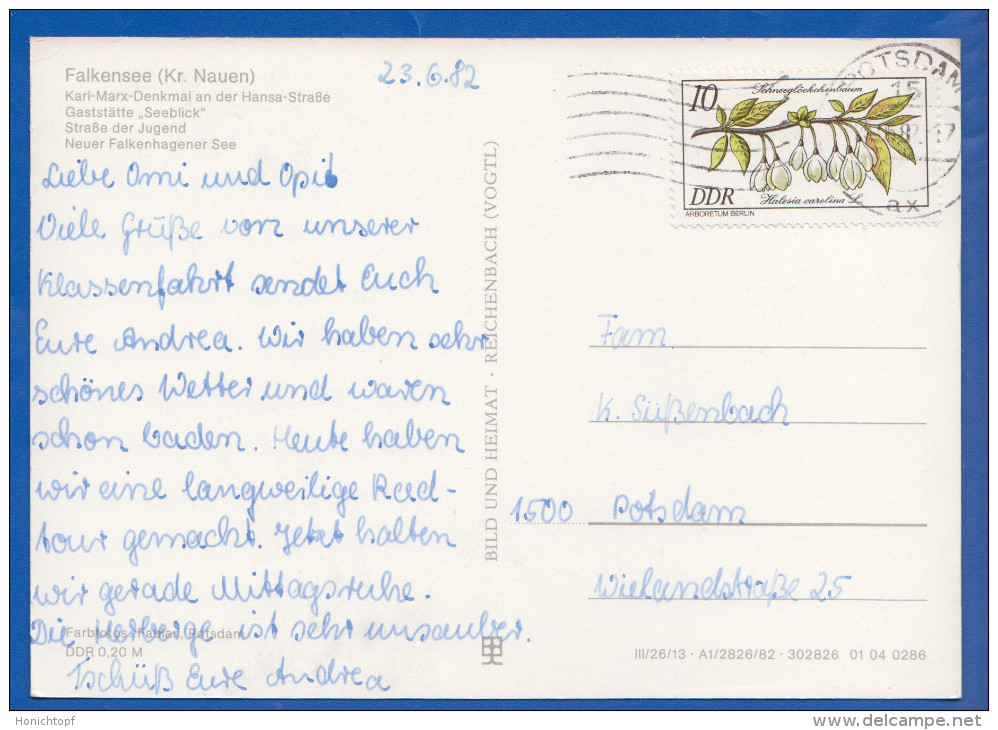 Falkensee (Kr. Nauen)
Karl-Marx-Denkmal an der Hansa-Straße
Gaststätte „Seeblick"
Straße der Jugend
Neuer Falkenhagener See
23.6.82
Liebe Omi und Opi
Viele Grüße von unserer
Klassenfahrt sendet Euch
Eure Andrea. Wir haben sehr
schönes Wetter und waren
schon baden. Heute haben
wir eine langweilige Rad-
tour gemacht. Jetzt halten
wir gerade Mittagsruhe.
Die Herberge ist sehr unsauber.
Tschüß Eure Andrea
Farbfotos: Potsdam
DDR 0,20 M
BILD UND HEIMAT · REICHENBACH (VOGTL)
10
Schneeglöckchenbaum
DDR
Halesia carolina L.
ARBORETUM BERLIN
POTSDAM
15
ax
Fam.
K. Süßenbach
1500 Potsdam
Wielandstraße 25
III/26/13 · A1/2826/82 · 302826 01 04 0286
Honichtopf
www.delcampe.net